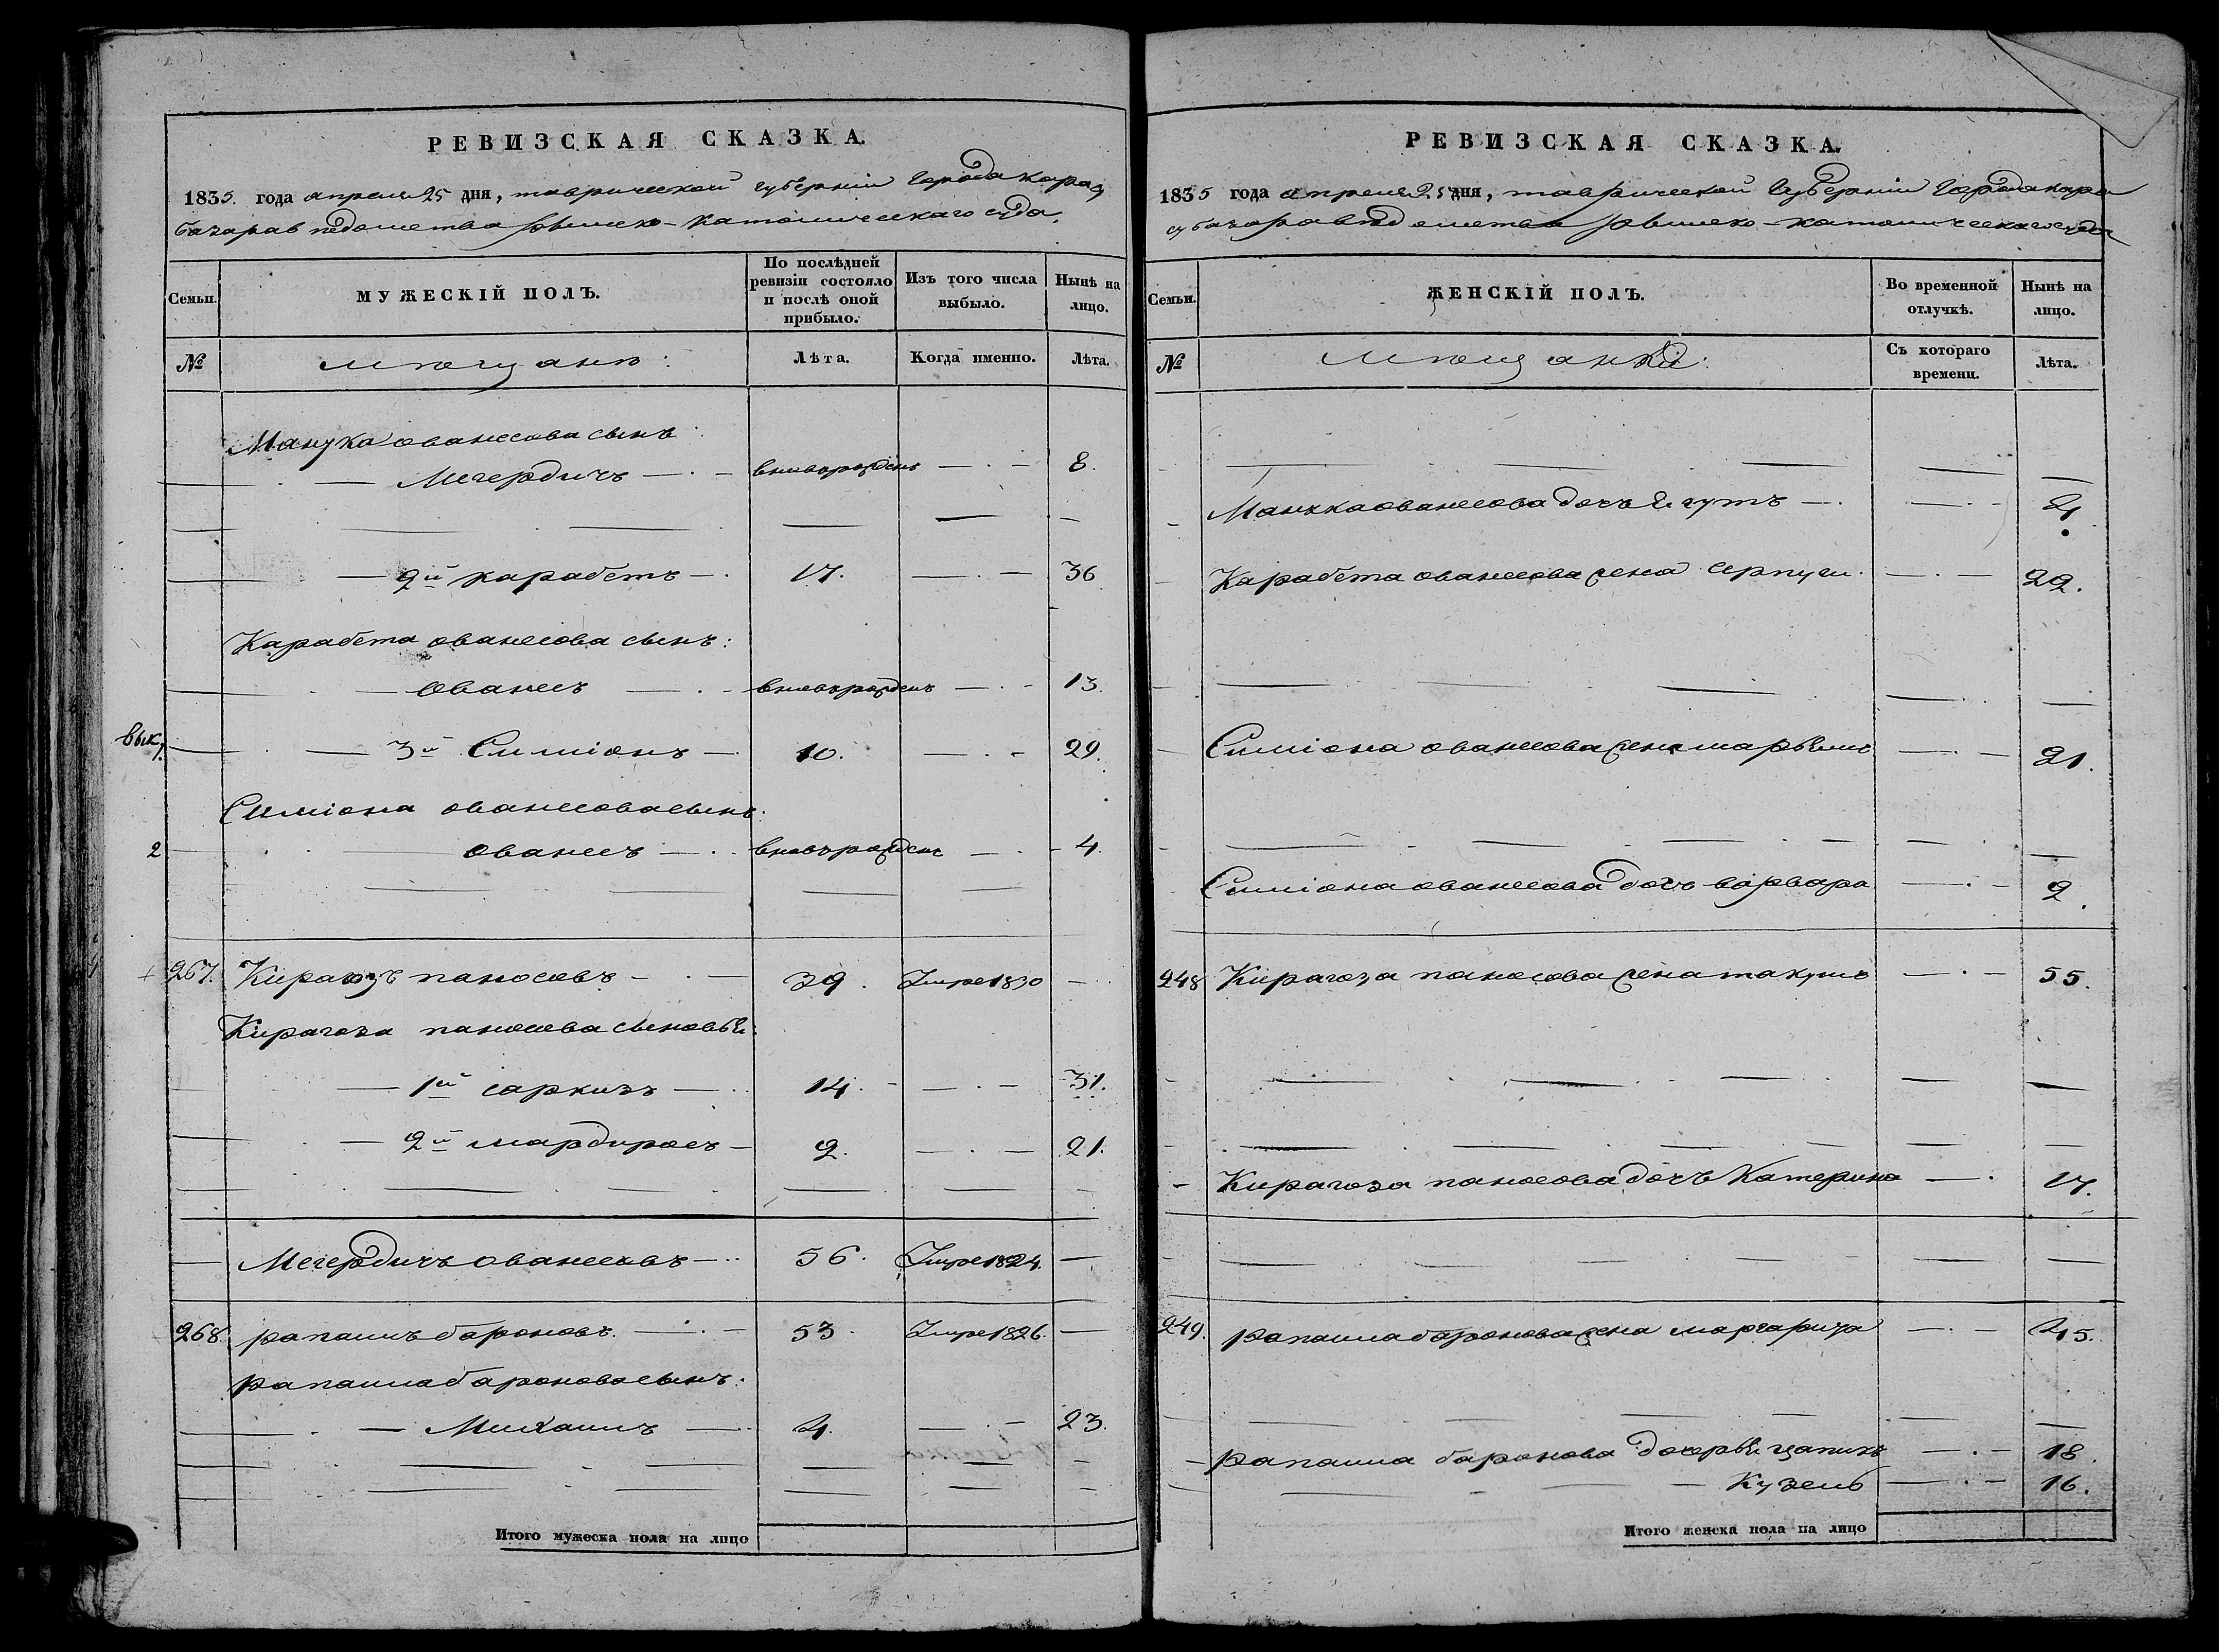 РЕВИЗСКАЯ СКАЗКА.
1835. года апреля 25 дня, таврической губерніи города карасу
базара в ведомства Римско-Католическаго суда.
Семьи.
МУЖЕСКІЙ ПОЛЪ.
По послѣдней ревизіи состояло и послѣ оной прибыло.
Изъ того числа выбыло.
Нынѣ на лицо.
№
мѣщанѣ:
Лѣта.
Когда именно.
Лѣта.
Манука ованесова сынъ:
— Мегердичъ — вновьрожденъ — 8.
— 2й карабетъ — 17. — 36
Карабета ованесова сынъ:
— Ованесъ — вновьрожденъ — 13.
— 3й Симіонъ — 10. — 29.
Симіона ованесова сынъ:
2 — ованесъ — вновьрожденъ — 4.
267. Кирагозъ паносовъ — 39. Умре 1830 —
Кирагоза паносова сыновьи:
— 1й саркизъ — 14. — 31.
— 2й мардиросъ — 2. — 21.
— Мегердичъ ованесовъ — 56. Умре 1824. —
268. рапаилъ бароновъ. — 53. Умре 1826. —
рапаила баронова сынъ:
— Михаилъ — 4. — 23.
Итого мужеска пола на лицо
РЕВИЗСКАЯ СКАЗКА.
1835 года апреля 25 дня, таврической Губерніи Города кара
субазара вѣдомства Римско-католическаго суда
Семьи.
ЖЕНСКІЙ ПОЛЪ.
Во временной отлучкѣ.
Нынѣ на лицо.
№
мѣщанки:
Съ котораго времени.
Лѣта.
Манука ованесова дочь Ягутъ — 4.
Карабета ованесова жена серпуги — 29.
Симіона ованесова жена марьямъ — 21.
Симіона ованесова дочь варвара — 2.
248 Кирагоза паносова жена такумъ — 55.
Кирагоза паносова дочь Катерина — 17.
249. рапаила баронова жена маргарита — 45.
рапаила баронова дочерьи — 18.
— Кузель — 16.
Итого женска пола на лицо